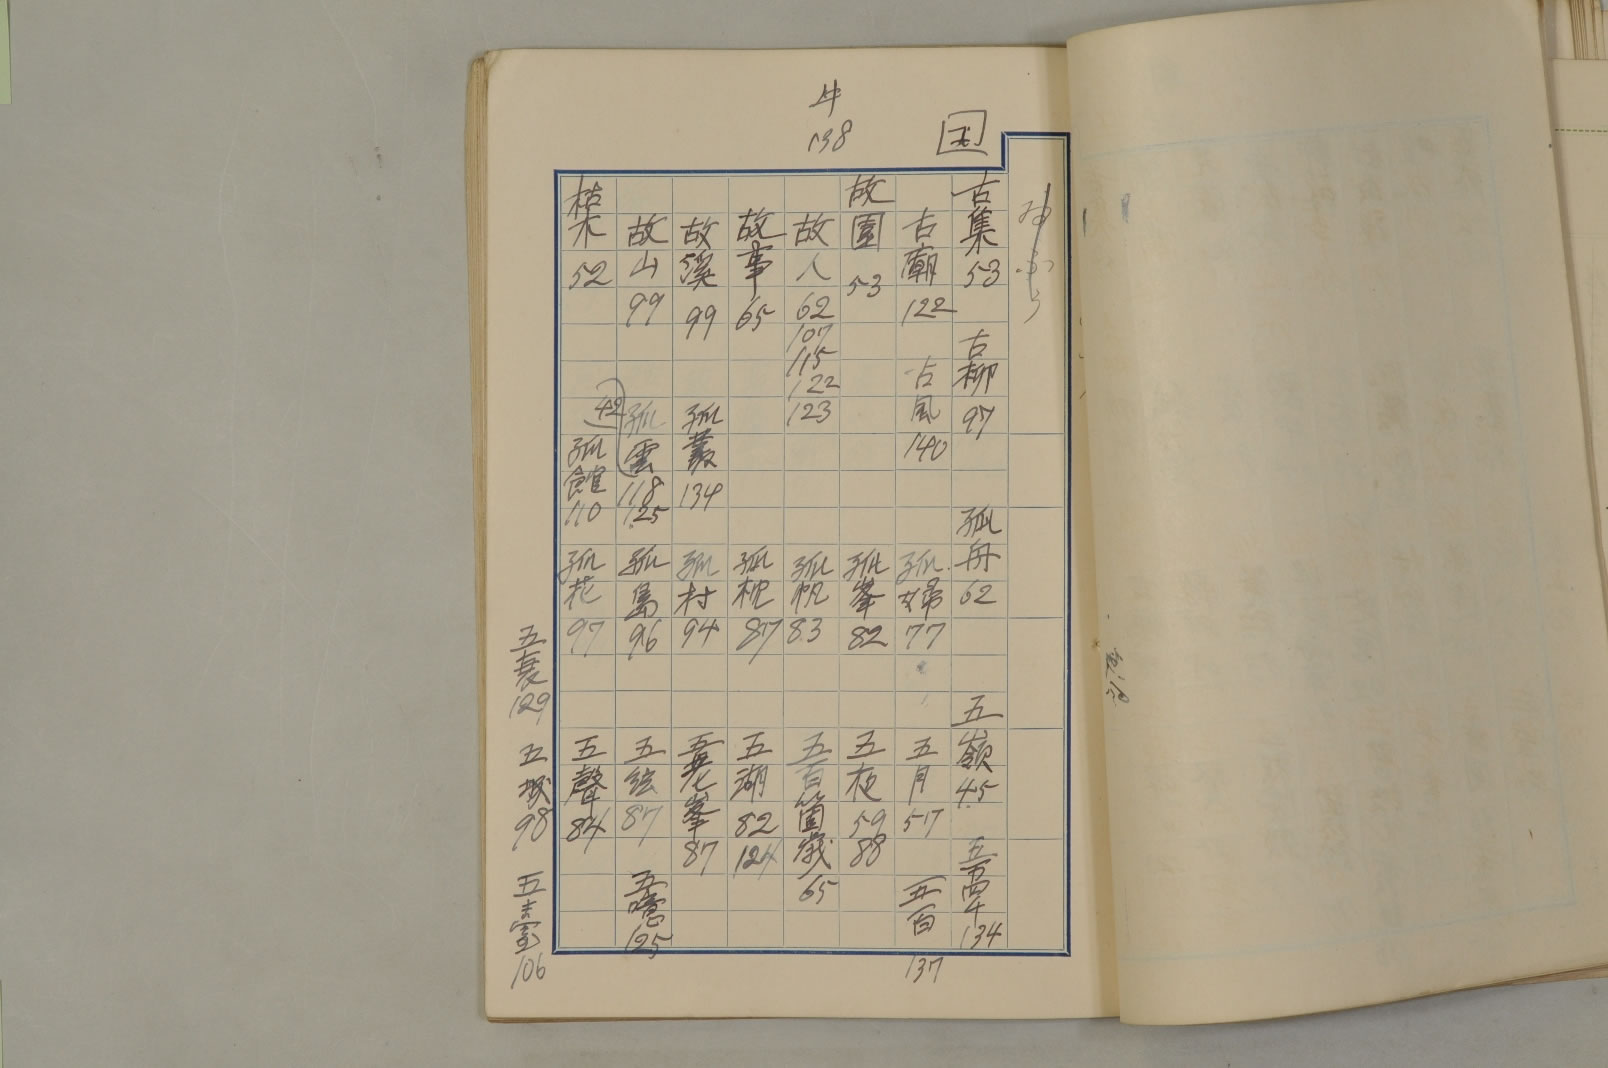 牛
138
古集 53
古柳 97
孤舟 62
五嶺 45
五萬四千 134
古廟 122
古風 140
孤婦 77
五月 57
五百 137
故園 53
孤峯 82
五夜 59 88
故人 62 107 115 122 123
孤帆 83
五百箇歳 65
故事 65
孤枕 87
五湖 82 124
故溪 99
孤叢 134
孤村 94
五老峯 87
故山 99
孤雲 118 125
42
孤島 96
五絃 87
五噫 125
枯木 52
孤館 110
孤花 97
五聲 84
129
五城 98
五臺 106